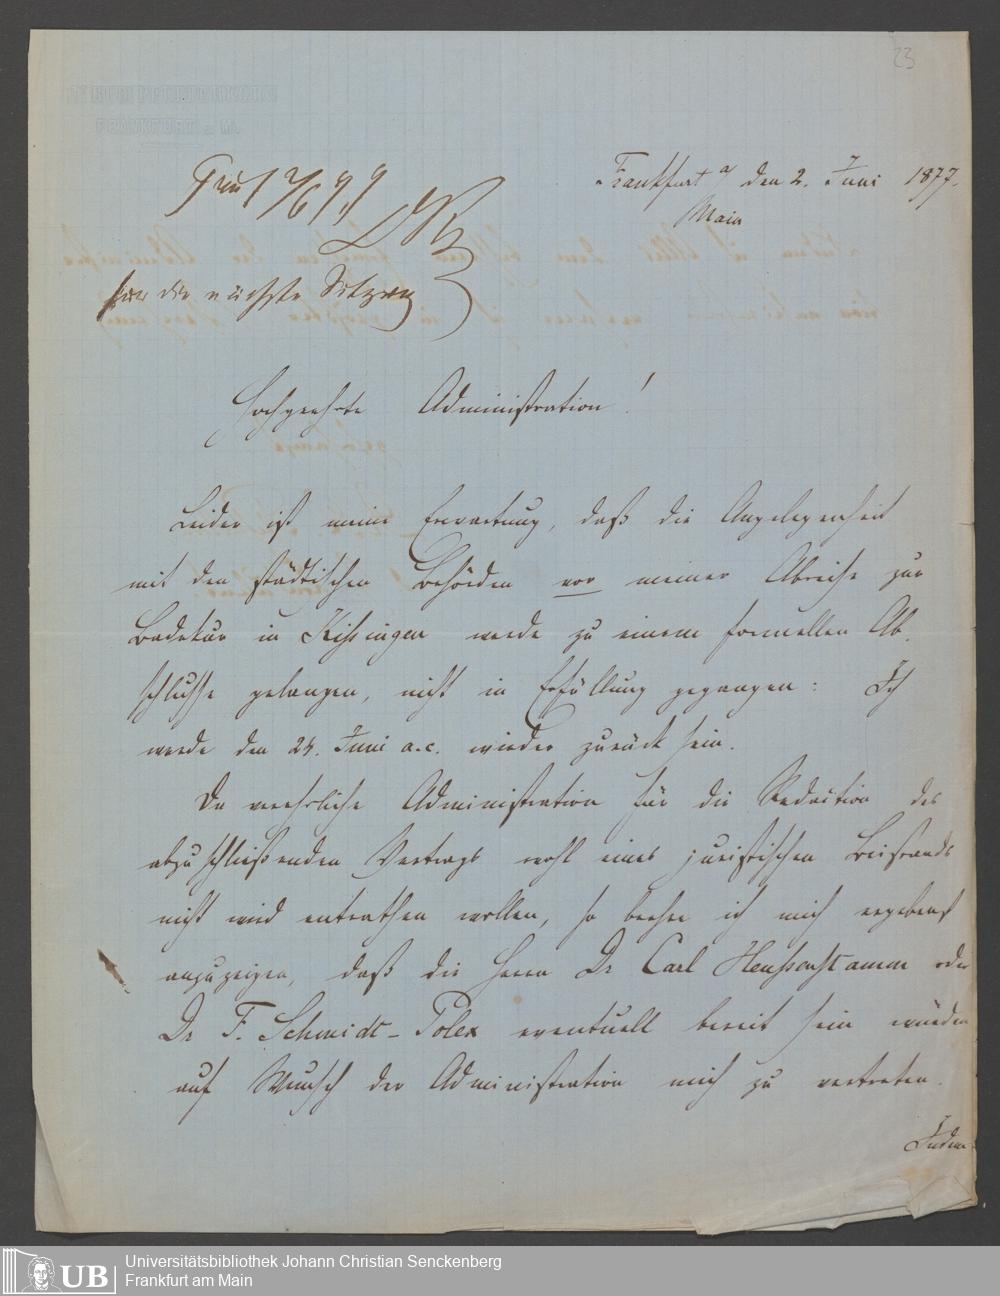 23
FRANKFURT a. M.
Frankfurt a/ den 2. Juni 1877.
Main
für die nächste Sitzung
Hochgeehrte Administration!
Leider ist meine Erwartung, daß die Angelegenheit
mit den städtischen Behörden vor meiner Abreise zur
Badekur in Kissingen werde zu einem formellen Ab-
schlusse gelangen, nicht in Erfüllung gegangen: Ich
werde den 24. Juni a.c. wieder zurück sein.
Da verehrliche Administration für die Redaction des
abzuschließenden Vertrags wohl eines juristischen Beistands
nicht wird entrathen wollen, so beehre ich mich ergebenst
anzuzeigen, daß die Herrn Dr Carl Heussenstamm oder
Dr F. Schmidt-Polex eventuell bereit sein würden
auf Wunsch der Administration mich zu vertreten.
Indem
UB Universitätsbibliothek Johann Christian Senckenberg
Frankfurt am Main